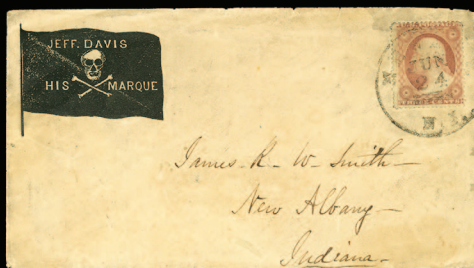 JEFF. DAVIS
HIS MARQUE
JUN
24
THREE CENTS
James R. W. Smith
New Albany
Indiana